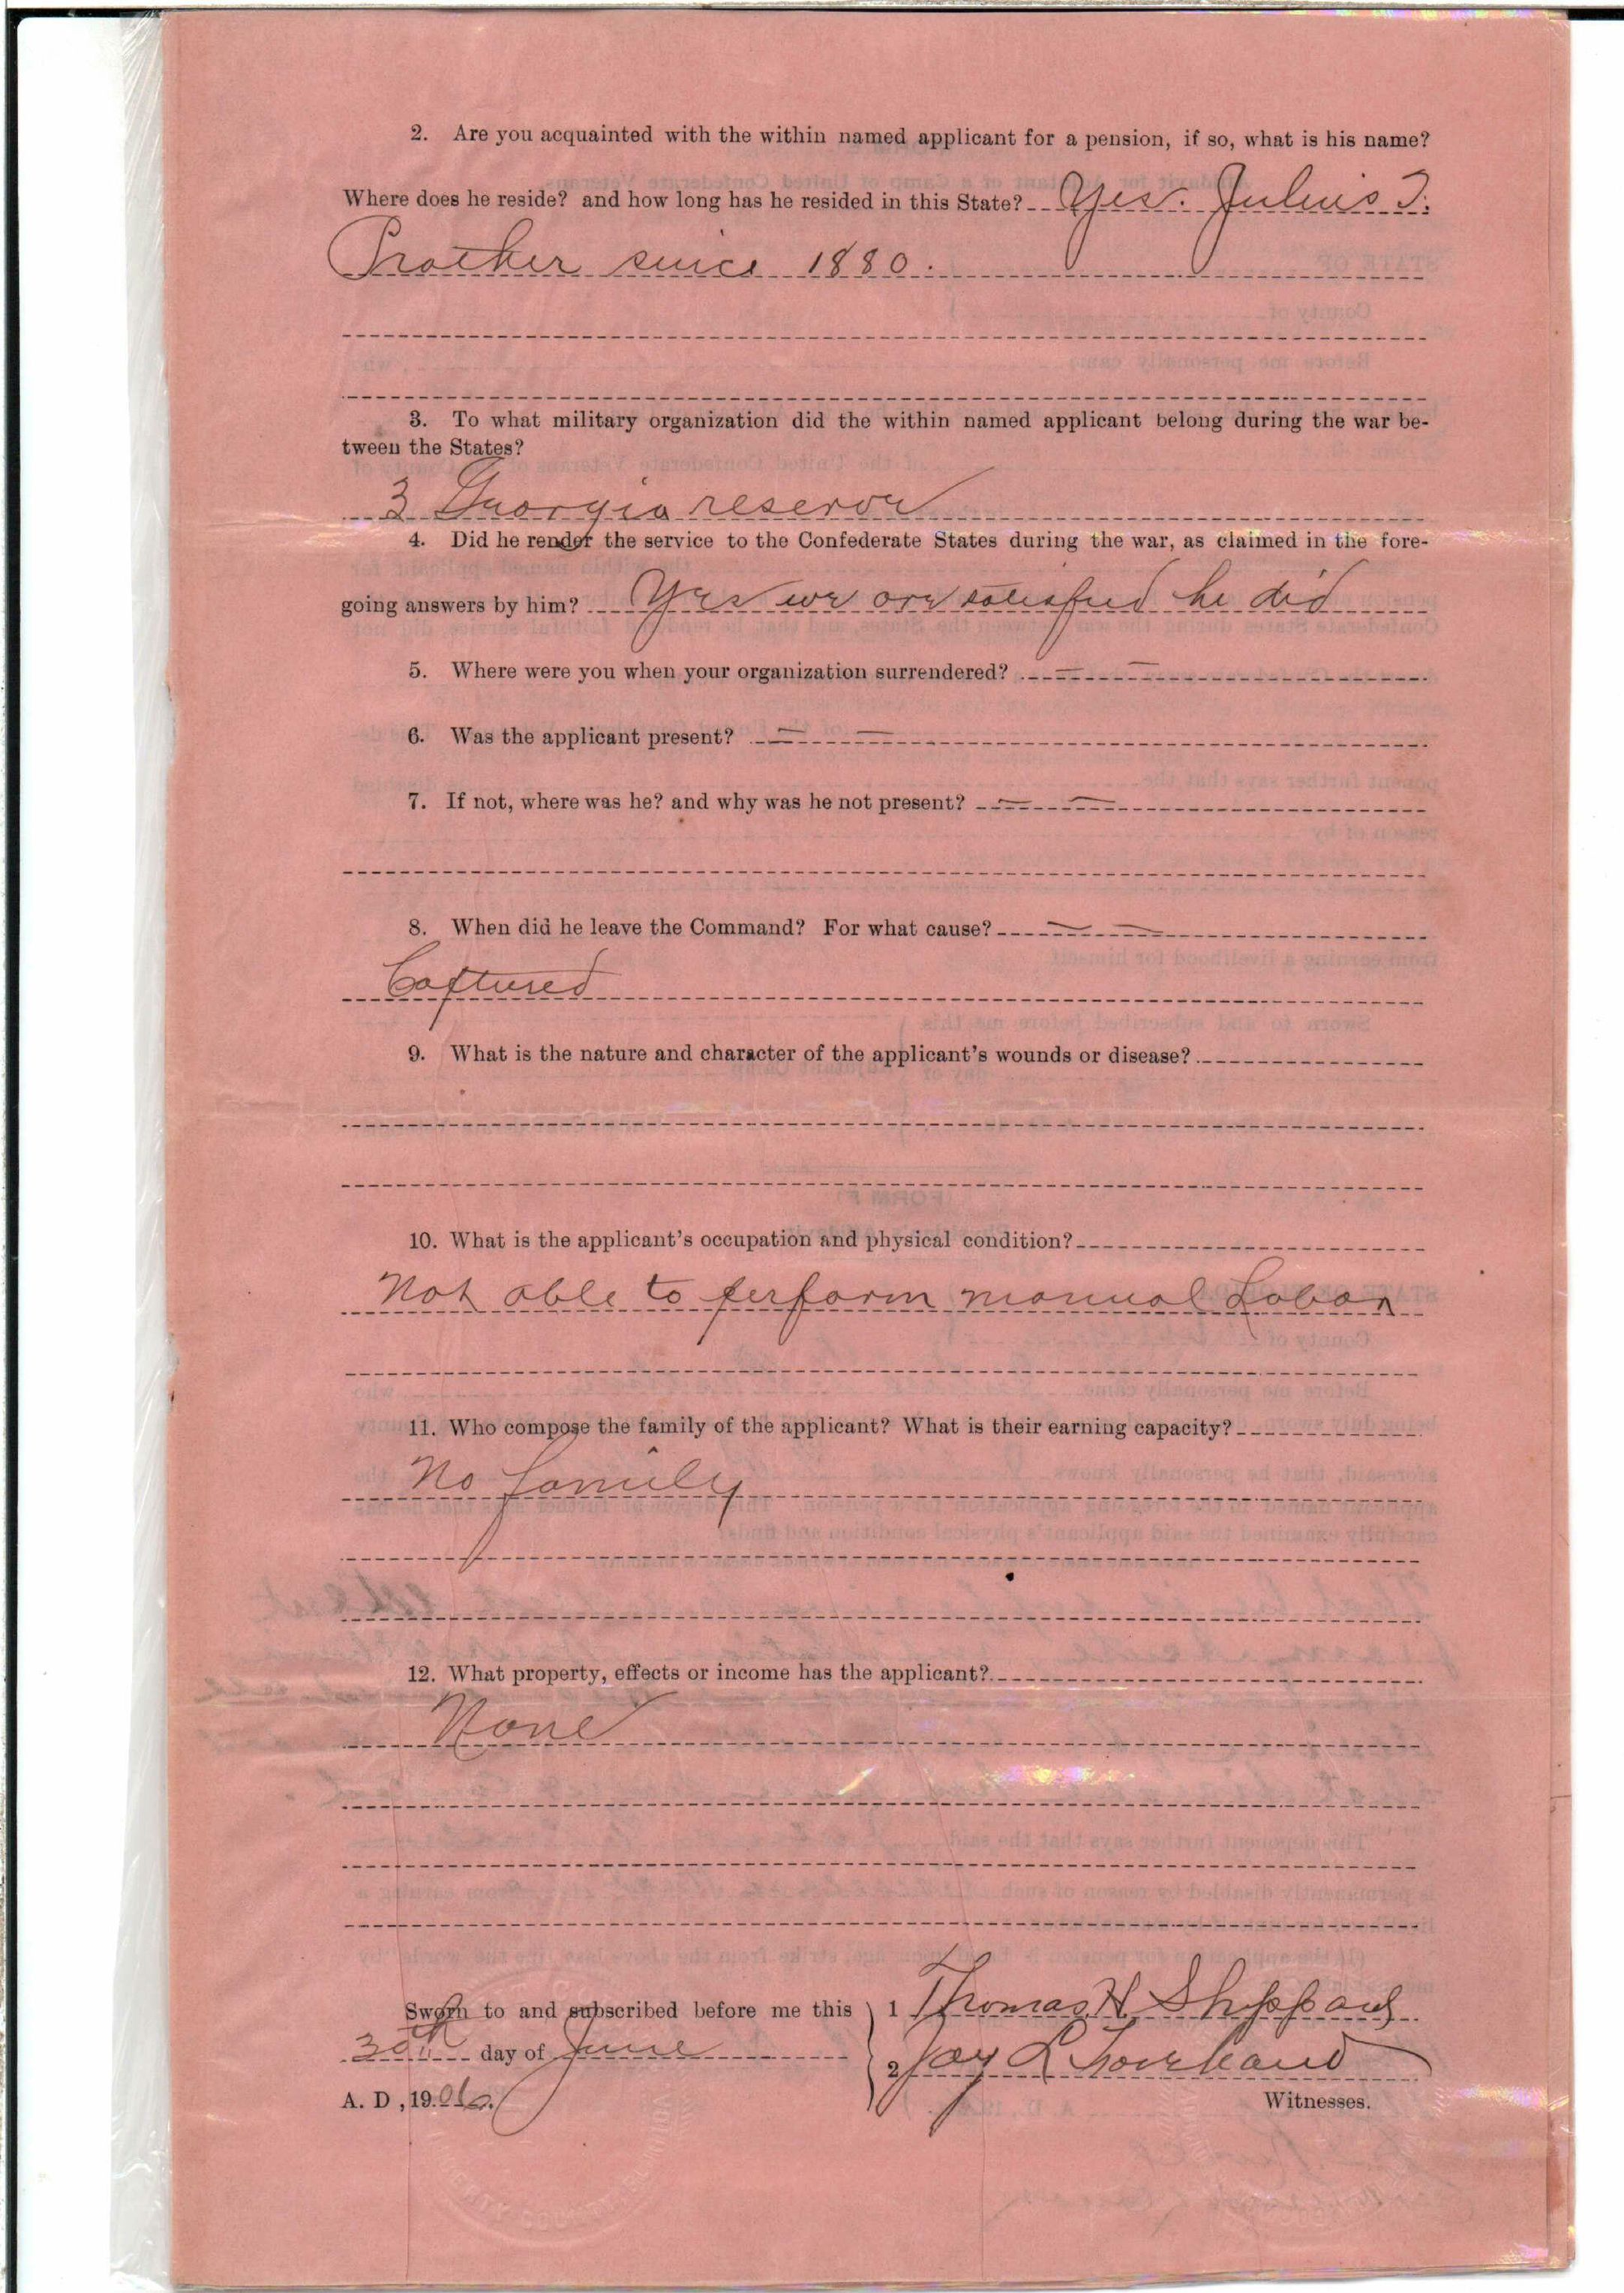 2. Are you acquainted with the within named applicant for a pension, if so, what is his name?
Where does he reside? and how long has he resided in this State? Yes. Julius T.
Prather since 1880.
3. To what military organization did the within named applicant belong during the war be-
tween the States?
3 Georgia reserve
4. Did he render the service to the Confederate States during the war, as claimed in the fore-
going answers by him? Yes we are satisfied he did
5. Where were you when your organization surrendered?
6. Was the applicant present?
7. If not, where was he? and why was he not present?
8. When did he leave the Command? For what cause?
Captured
9. What is the nature and character of the applicant's wounds or disease?
10. What is the applicant's occupation and physical condition?
Not able to perform manual Labor
11. Who compose the family of the applicant? What is their earning capacity?
No family
12. What property, effects or income has the applicant?
None
Sworn to and subscribed before me this 1 Thomas H Sheppard
30th day of June 2 Joy L
A. D, 1906. Witnesses.